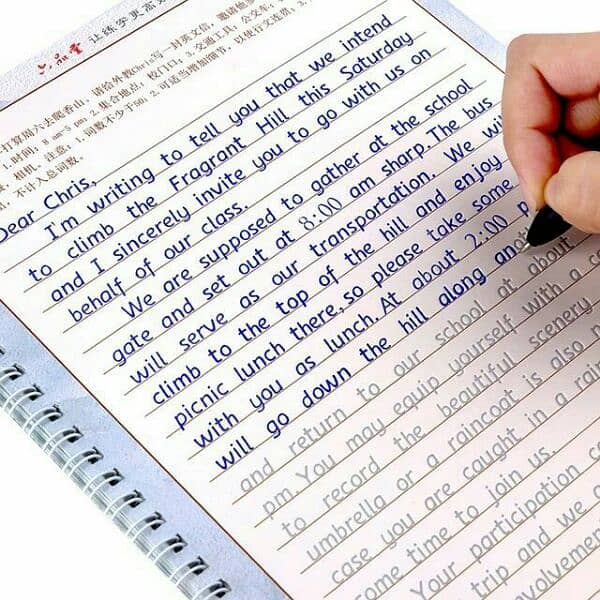 六品堂 让练字更高效
打算周六去爬香山，请给外教Chris写一封英文信，邀请他
1.时间：8 am-5 pm; 2.集合地点：校门口; 3.交通工具：公交车;
相机。注意：1.词数不少于50; 2.可适当增加细节，以使行文连贯; 3.
不计入总词数。
Dear Chris,
I'm writing to tell you that we intend
to climb the Fragrant Hill this Saturday
and I sincerely invite you to go with us on
behalf of our class.
We are supposed to gather at the school
gate and set out at 8:00 am sharp. The bus
will serve as our transportation. We will
climb to the top of the hill and enjoy
picnic lunch there, so please take some
with you as lunch. At about 2:00 p
will go down the hill along ano
and return to our school at about
pm. You may equip yourself with a c
to record the beautiful scenery
umbrella or a raincoat is also
case you are caught in a rain
some time to join us.
Your participation
trip and we
involvement